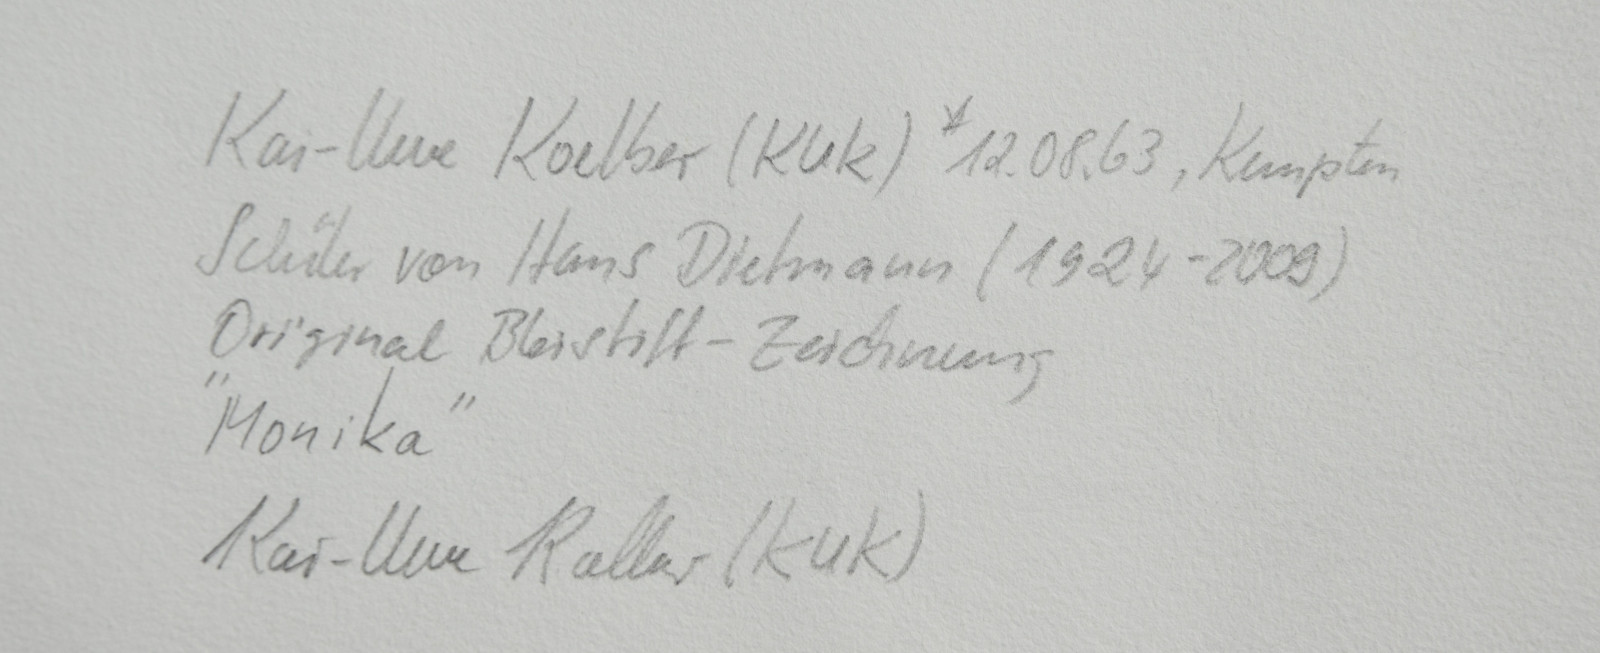 Kai-Uwe Koelber (KUK) *12.08.63, Kempten
Schüler von Hans Dietmann (1924-2009)
Original Bleistift-Zeichnung
"Monika"
Kai-Uwe (KUK)